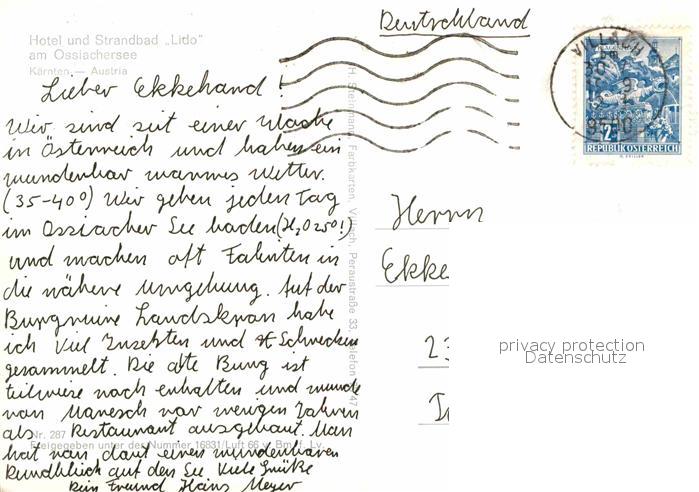 Deutschland
Hotel und Strandbad „Lido"
am Ossiachersee
Kärnten — Austria
Lieber Ekkehard!
Wir sind seit einer Woche
in Österreich und haben ein
wunderbar warmes Wetter.
(35-40°) Wir gehen jeden Tag
im Ossiacher See baden (H₂O 25°!)
und machen oft Fahrten in
die nähere Umgebung. Auf der
Burgruine Landskron habe
ich viel Insekten und Schnecken
gesammelt. Die alte Burg ist
teilweise noch erhalten und wurde
von Manesch vor wenigen Jahren
als Restaurant ausgebaut. Man
hat von dort einen wunderbaren
Rundblick auf den See Viele Grüße
Dein Freund Hans Meyer
Nr. 287
Freigegeben unter der Nummer 16831/Luft 66 v. Bm. f. Lv.
H. Steinmann, Farbkarten, Villach, Peraustraße 33, Telefon 47
VILLACH
9500
2
REPUBLIK ÖSTERREICH
Herrn
Ekke
23
privacy protection
Datenschutz